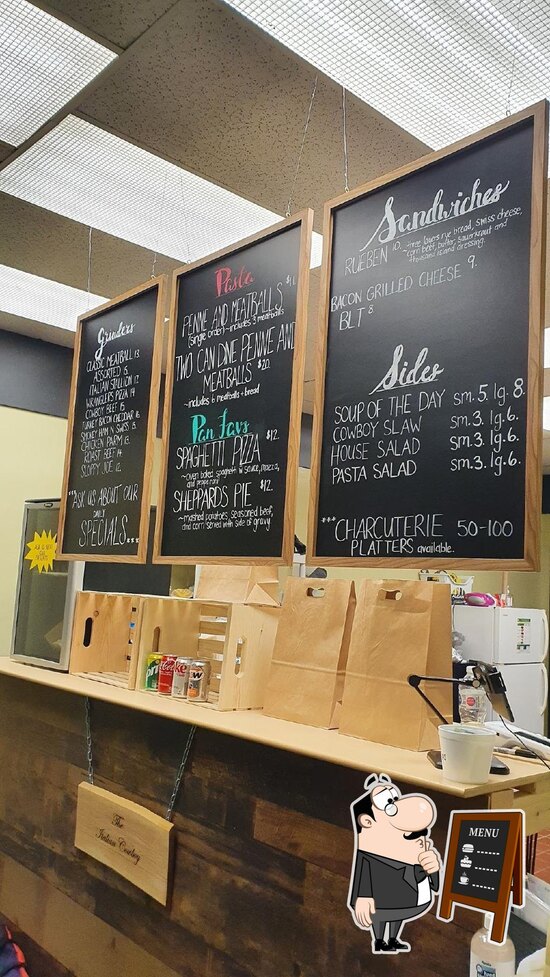 Grinders
CLASSIC MEATBALL 13
ASSORTED 15
ITALIAN STALLION 12
WRANGLERS PIZZA 14
COWBOY BEEF 15
TURKEY BACON CHEDDAR 16
SMOKEY HAM N SWISS 13
CHICKEN PARM 13
ROAST BEEF 14
SLOPPY JOE 12
**ASK US ABOUT OUR
DAILY
SPECIALS***
Pasta
PENNE AND MEATBALLS $11
(single order)~includes 3 meatballs
TWO CAN DINE PENNE AND
MEATBALLS $20.
~includes 6 meatballs + bread
Pan Favs
SPAGHETTI PIZZA $12.
~oven baked spaghetti w sauce, mozza,
and pepperoni
SHEPPARDS PIE $12.
~mashed potatoes, seasoned beef,
and corn served with side of gravy
Sandwiches
RUEBEN 10. ~three layers rye bread, swiss cheese,
corn beef, butter, sauerkraut and
thousand island dressing.
BACON GRILLED CHEESE 9.
BLT 8
Sides
SOUP OF THE DAY sm.5. lg.8.
COWBOY SLAW sm.3. lg.6.
HOUSE SALAD sm.3. lg.6.
PASTA SALAD sm.3. lg.6.
***CHARCUTERIE 50-100
PLATTERS available.
The
Italian Cowboy
MENU